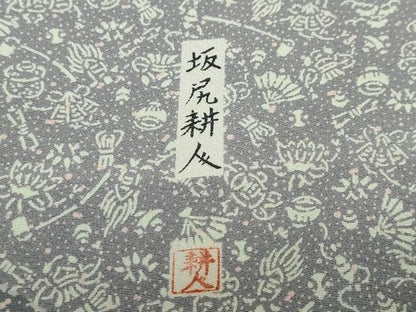 坂尻耕人
耕人